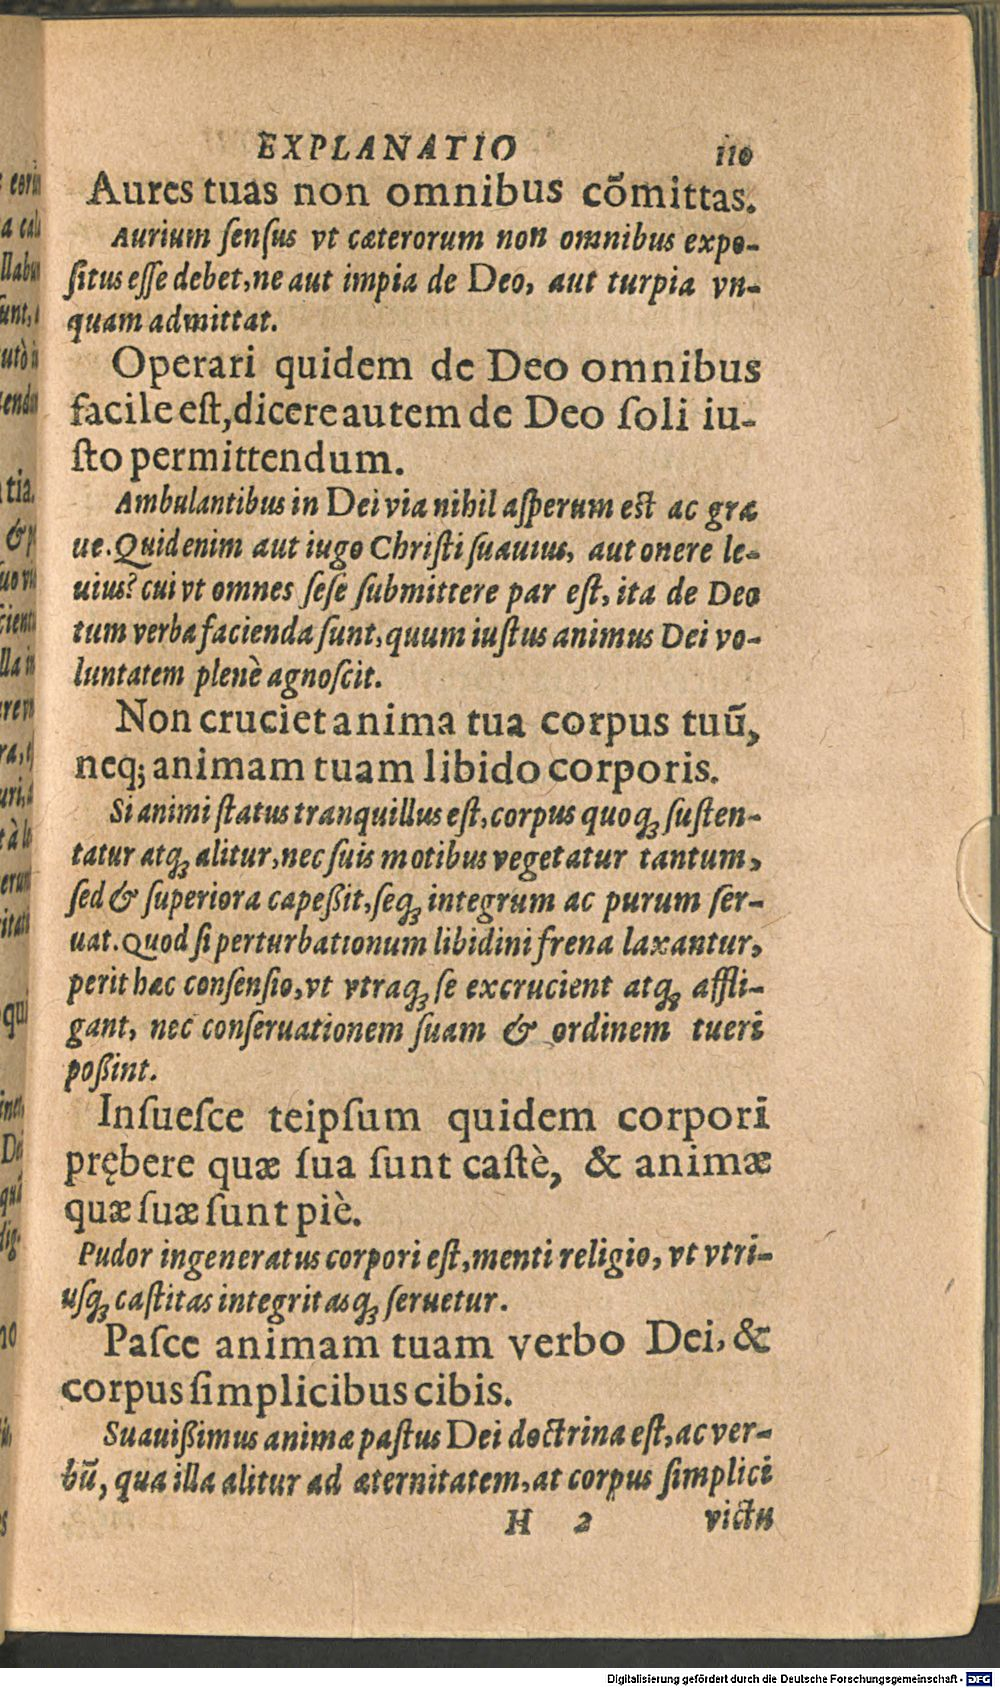 EXPLANATIO 110
Aures tuas non omnibus cõmittas.
Aurium ſenſus vt cæterorum non omnibus expo-
ſitus eſſe debet, ne aut impia de Deo, aut turpia vn-
quam admittat.
Operari quidem de Deo omnibus
facile eſt, dicere autem de Deo ſoli iu-
ſto permittendum.
Ambulantibus in Dei via nihil aſperum eſt ac gra
ue. Quid enim aut iugo Chriſti ſuauius, aut onere le-
uius? cui vt omnes ſeſe ſubmittere par eſt, ita de Deo
tum verba facienda ſunt, quum iuſtus animus Dei vo-
luntatem plenè agnoſcit.
Non cruciet anima tua corpus tuũ,
neq; animam tuam libido corporis.
Si animi ſtatus tranquillus eſt, corpus quoq; ſuſten-
tatur atq; alitur, nec ſuis motibus vegetatur tantum,
ſed & ſuperiora capeßit, ſeq; integrum ac purum ſer-
uat. Quod ſi perturbationum libidini frena laxantur,
perit hæc conſenſio, vt vtraq; ſe excrucient atq; affli-
gant, nec conſeruationem ſuam & ordinem tueri
poßint.
Inſueſce teipſum quidem corpori
prębere quæ ſua ſunt caſtè, & animæ
quæ ſuæ ſunt piè.
Pudor ingeneratus corpori eſt, menti religio, vt vtri-
uſq; caſtitas integritasq; ſeruetur.
Paſce animam tuam verbo Dei, &
corpus ſimplicibus cibis.
Suauißimus animæ paſtus Dei doctrina eſt, ac ver-
bũ, qua illa alitur ad æternitatem, at corpus ſimplici
H 2 victu
Digitalisierung gefördert durch die Deutsche Forschungsgemeinschaft - DFG